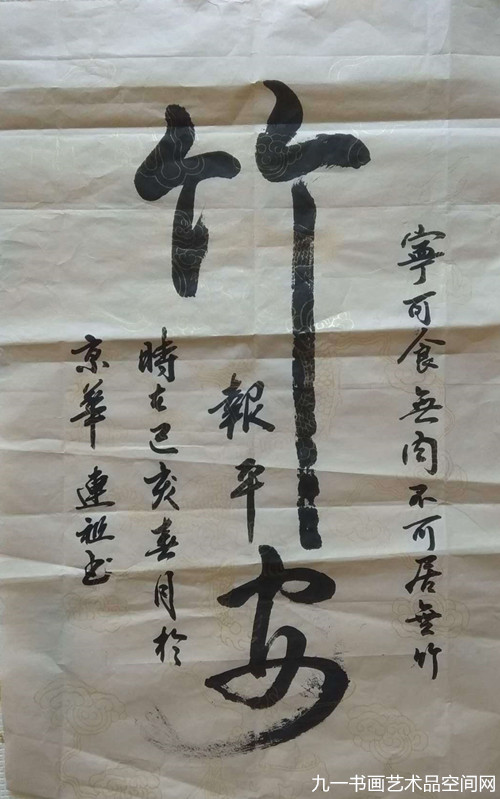 寧可食無肉不可居無竹
竹報平安
時在己亥春月於
京華連祖书
九一书画艺术品空间网